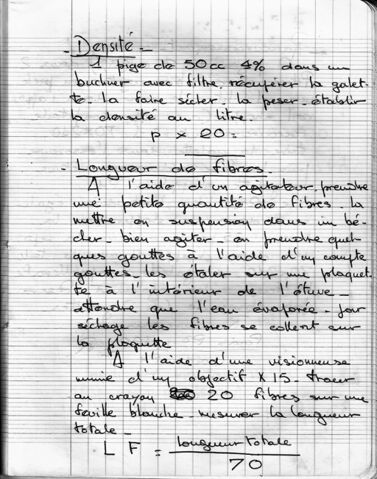 - Densité -
1 pige de 50cc 4% dans un
buchner avec filtre, récupérer la galet-
te - la faire sécher - la peser - établir
la densité au litre.
p x 20 =
- Longueur de fibres -
A l'aide d'un agitateur prendre
une petite quantité de fibres - la
mettre en suspension dans un bé-
cher - bien agiter - en prendre quel-
ques gouttes à l'aide d'un compte
gouttes - les étaler sur une plaquet-
te à l'intérieur de l'étuve -
attendre que l'eau évaporée - par
séchage les fibres se collent sur
la plaquette
A l'aide d'une visionneuse
munie d'un objectif X 15 - tracer
au crayon 20 fibres sur une
feuille blanche - mesurer la longueur
totale -
L F = longueur totale
70